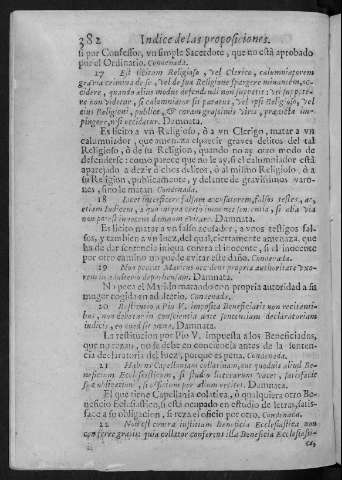 382 Indice de las proposiciones.
ſi por Confeſſor, vn ſimple Sacerdote, que no eſtà aprobado
por el Ordinario. Condenada.
17 Eſt licitum Religioſo, vel Clerico, calumniatorem
gravia crimina de ſe, vel de ſua Religione ſpargere minantem, oc-
cidere, quando alius modus defendendi non ſuppetit: vti ſuppete-
re non videtur, ſi calumniator ſit paratus, vel ipſi Religioſo, vel
eius Religioni, publicè, & coram graviſimis viris, prædicta im-
pingere, niſi occidatur. Damnata.
Es licito a vn Religioſo, ò a vn Clerigo, matar a vn
calumniador, que amenaza eſparcir graves delitos del tal
Religioſo, ò de ſu Religion, quando no ay otro modo de
defenderſe: como parece que no le ay, ſi el calumniador eſtà
aparejado a dezir dichos delitos, ò al miſmo Religioſo, ò a
ſu Religion, publicamente, y delante de graviſsimos varo-
nes, ſino le matan. Condenada.
18 Licet interficere falſum accuſatorem, falſos teſtes, ac
etiam Iudicem, à quo iniqua certò imminet ſententia, ſi alia via
non poteſt innocens damnum evitare. Damnata.
Es licito matar a vn falſo acuſador, a vnos teſtigos fal-
ſos, y tambien a vn Iuez, del qual ciertamente amenaza, que
ha de dar ſentencia iniqua contra el inocente, ſi el inocente
por otro camino no puede evitar eſte daño. Condenada.
19 Non peccat Maritus occidens propria authoritate vxo-
rem in adulterio deprehenſam. Damnata.
No peca el Marido matando con propria autoridad a ſu
muger cogida en adulterio. Condenada.
20 Reſtitutio a Pio V. impoſita Beneficiatis non recitanti-
bus, non debetur in conſcientia ante ſententiam declaratoriam
iudicis, eo quod ſit pœna. Damnata.
La reſtitucion por Pio V. impueſta a los Beneficiados,
que no rezan, no ſe debe en conciencia antes de la ſenten-
cia declaratoria del Iuez, porque es pena. Condenada.
21 Habens Capellaniam collativam, aut quodvis aliud Be-
neficium Eccleſiaſticum, ſi ſtudio litterarum vacet, ſatisfacit
ſuæ obligationi, ſi officium per alium recitet. Damnata.
El que tiene Capellania colativa, ò qualquiera otro Be-
neficio Ecleſiaſtico, ſi eſtà ocupado en eſtudio de letras, ſatis-
face a ſu obligacion, ſi reza el oficio por otro. Condenada.
22 Non eſt contra iuſtitiam Beneficia Eccleſiaſtica non
conferre gratis: quia collator conferens illa Beneficia Eccleſiaſti-
ca,